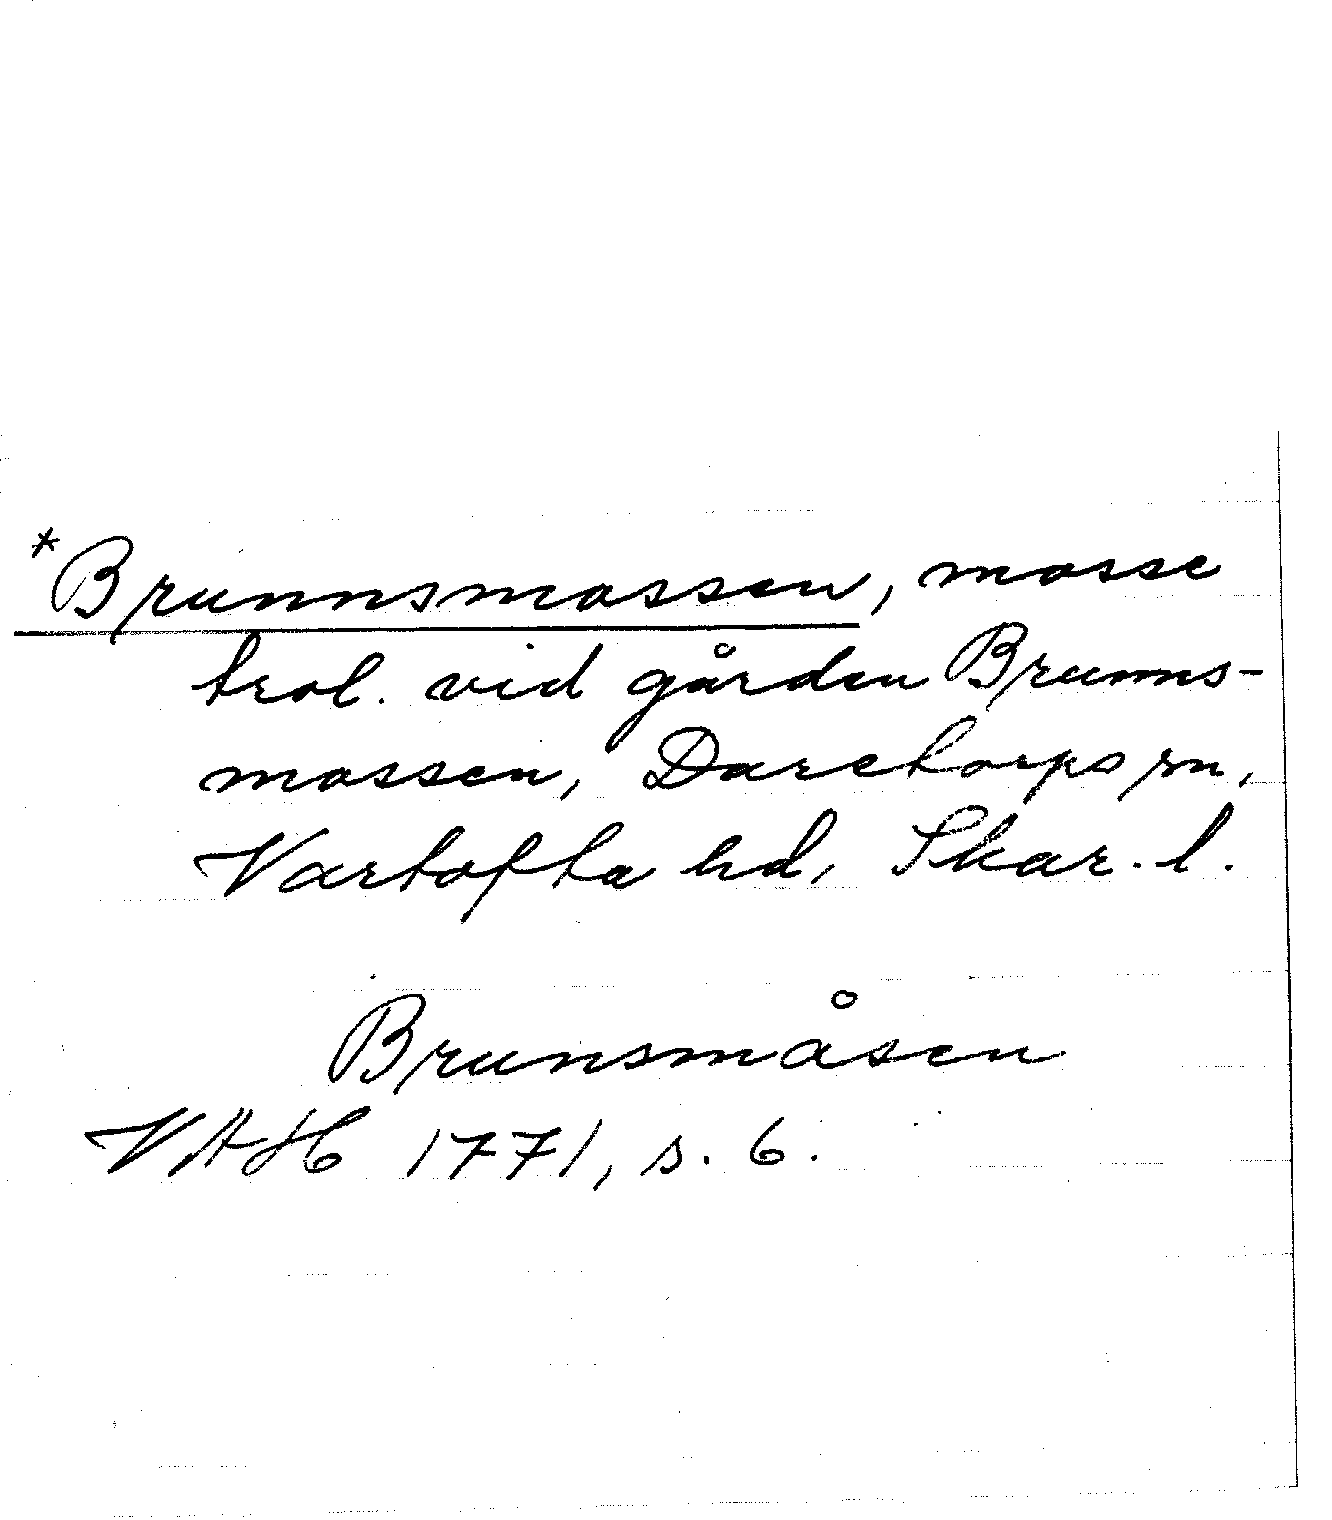 *Brunnsmossen, mosse
trol. vid gården Brunns-
mossen, Daretorps sn,
Vartofta hd, Skar. l.
Brunsmåsen
VAH 1771, s. 6.